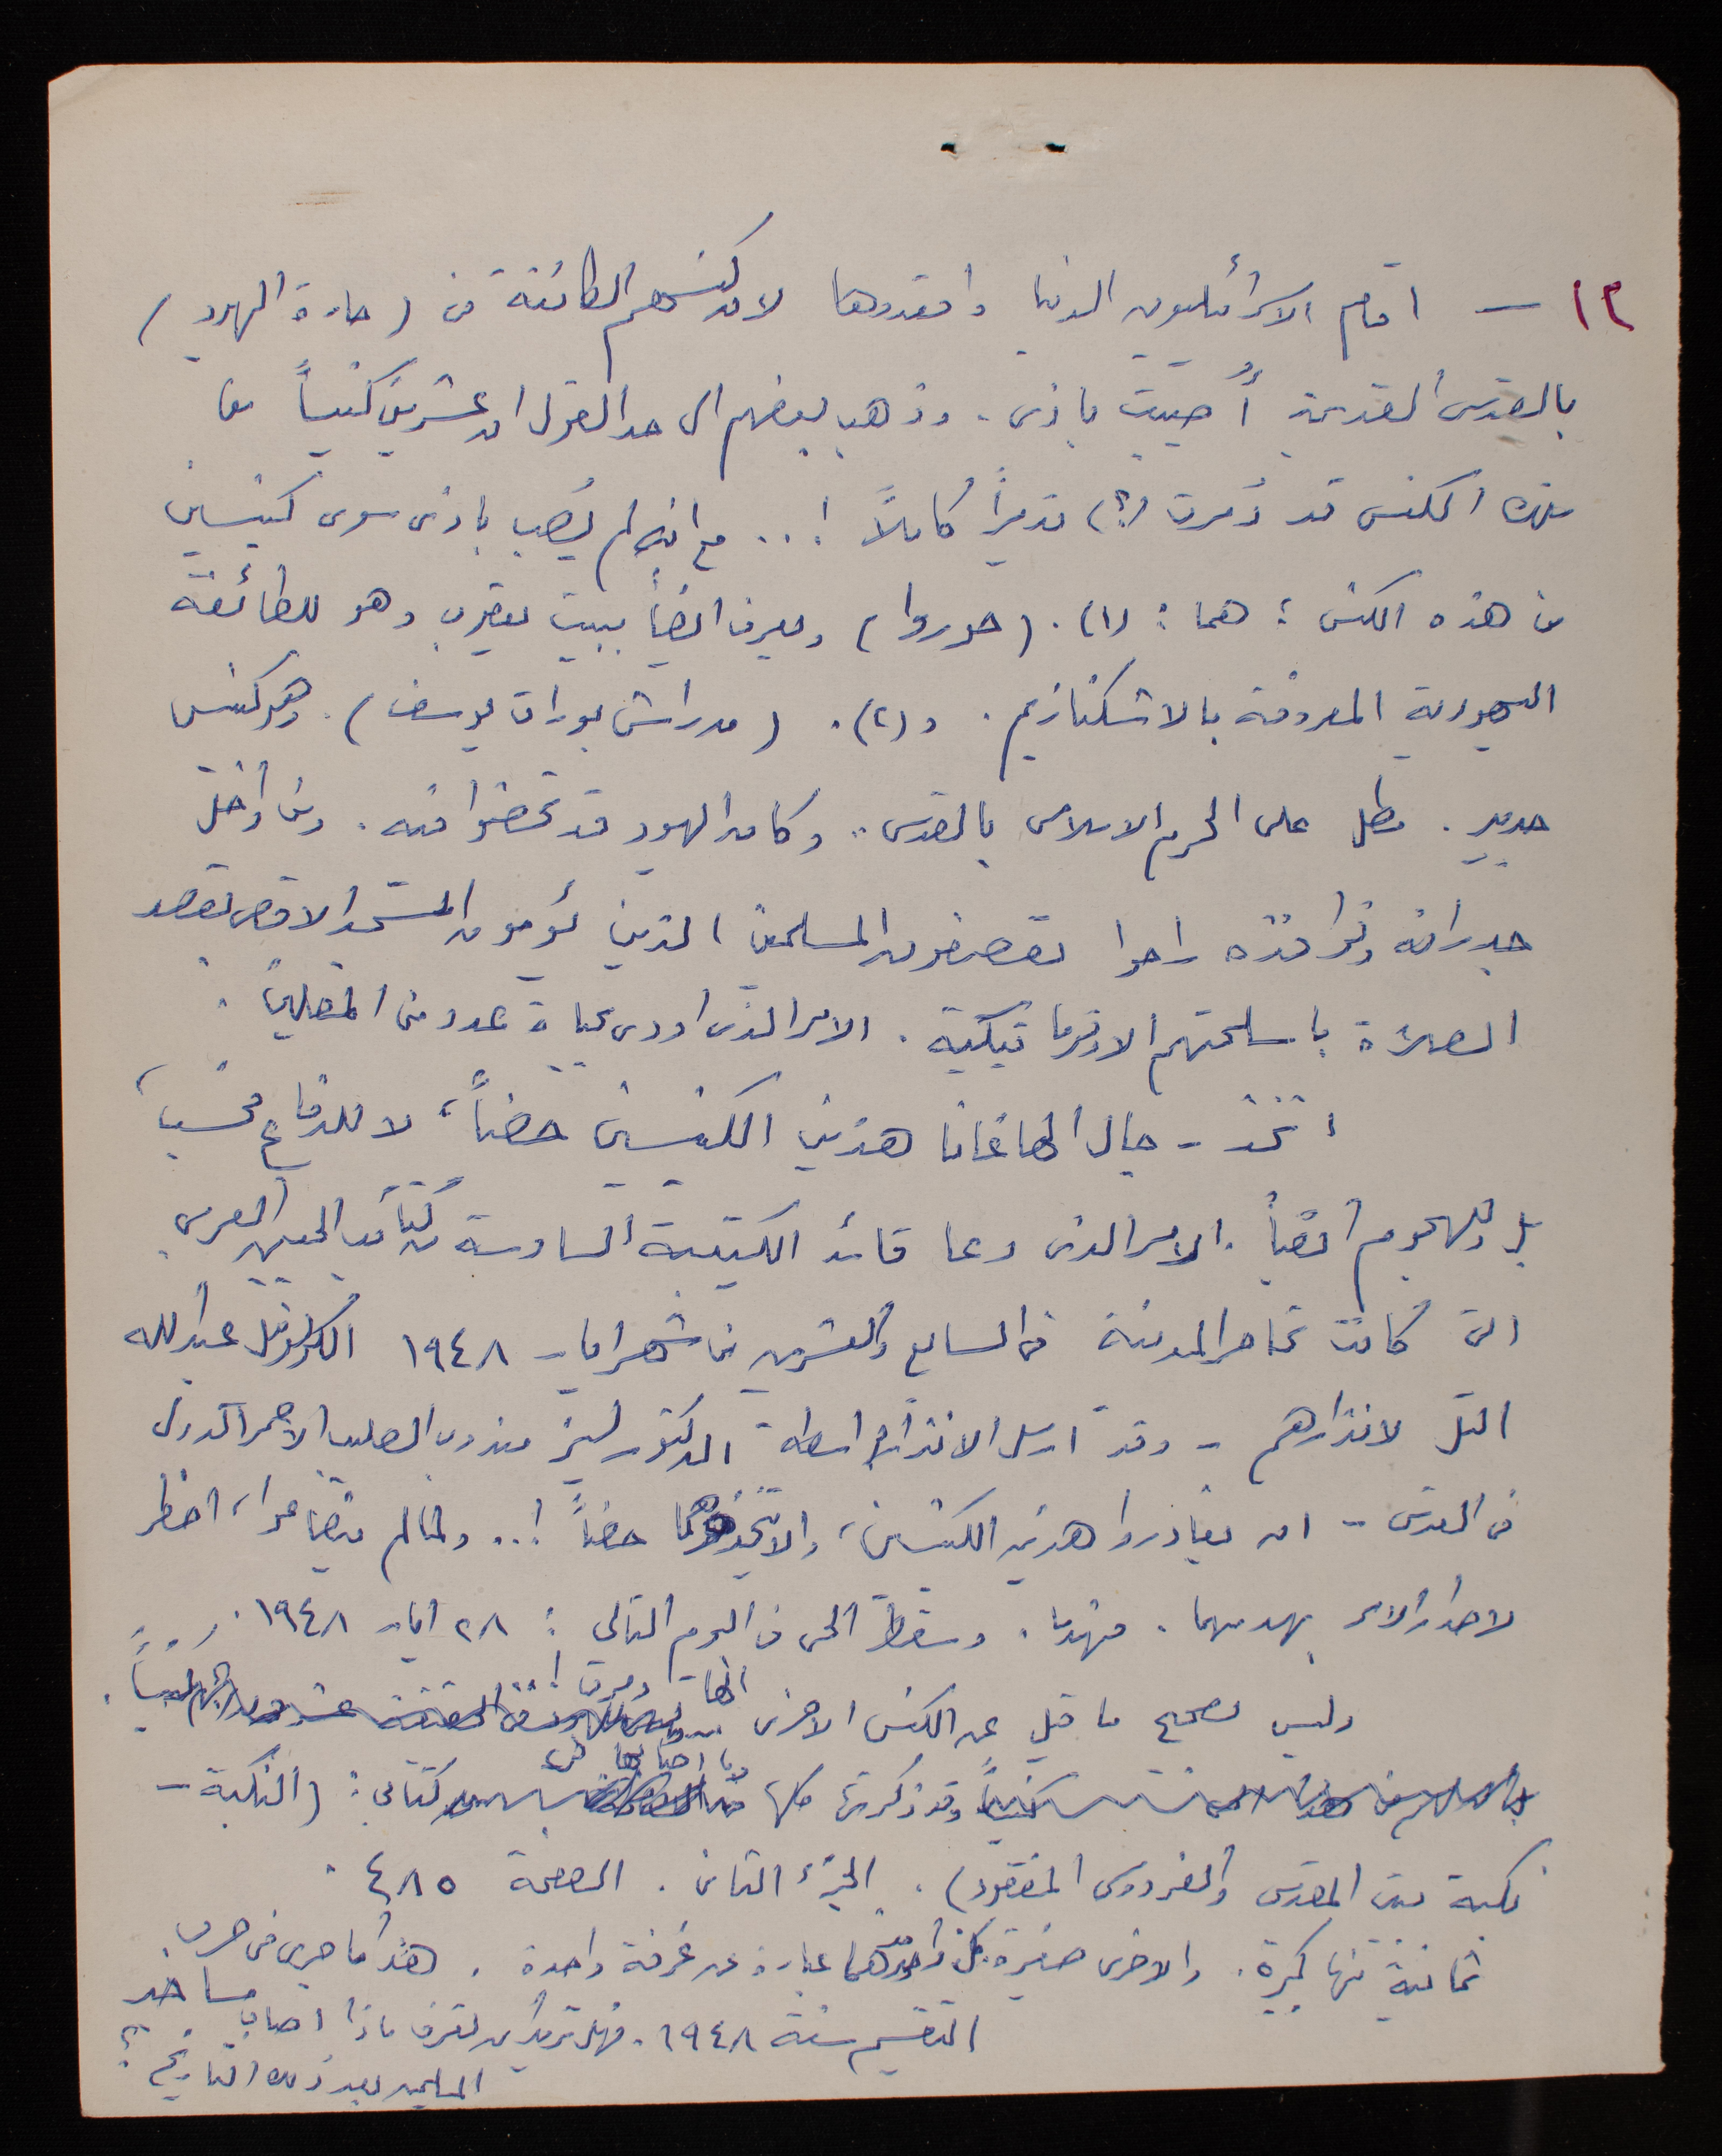 ١٢ - اقام الاسرائيليون الدنيا واقعدوها لان كنسهم الكائنة في (حارة اليهود)
بالقدس القديمة أُصيبت باذى. وذهب بعضهم الى حد القول ان عشرين كنيساً من
هذه الكنس قد دُمرت (؟) تدميراً كاملاً !.. مع انه لم يُصب باذى سوى كنيسين
من هذه الكنس؛ هما: (١). (حوروا) ويعرف ايضاً ببيت يعقوب وهو للطائفة
اليهودية المعروفة بالاشكنازيم. و (٢). (مدراش بورات يوسف). وهو كنيس
جديد. مطل على الحرم الاسلامي بالقدس.. وكان اليهود قد تحصنوا فيه. ومن داخل
جدرانه ونوافذه راحوا يقصفون المسلمين الذين يؤمون المسجد الاقصى بقصد
الصلاة باسلحتهم الاوتوماتيكية. الامر الذي اودى بحياة عدد من المصلين.
اتخذ رجال الهاغانا هذين الكنيسين حصناً، لا للدفاع فحسب،
بل وللهجوم ايضاً. الامر الذي دعا قائد الكتيبة السادسة من كتائب الجيش العربي
التي كانت تحاصر المدينة في السابع والعشرين من شهر ايار ١٩٤٨ الكولونيل عبد الله
التل لانذارهم - وقد ارسل الانذار بواسطة الدكتور ليز مندوب الصليب الاحمر الدولي
في القدس - ان يغادروا هذين الكنيسين، والا يتخذوهما حصناً !.. ولما لم ينصاعوا، اضطر
لاصدار الامر بهدمهما. فهدما. وسقط الحي في اليوم التالي: ٢٨ ايار ١٩٤٨.
وليس بصحيح ما قيل عن الكنس الاخرى انها دمرت !..
وقد ذكرتها كلها في كتابي: (النكبة -
نكبة بيت المقدس والفردوس المفقود). الجزء الثاني. الصفحة ٤٨٥.
ثمانية منها كبيرة. والاخرى صغيرة، كل واحدة منها عبارة عن غرفة واحدة. هذا ما جرى في حرب
التقسيم سنة ١٩٤٨. فهل تريد ان تعرف ماذا اصاب مساجد
المسلمين بعد ذلك التاريخ؟